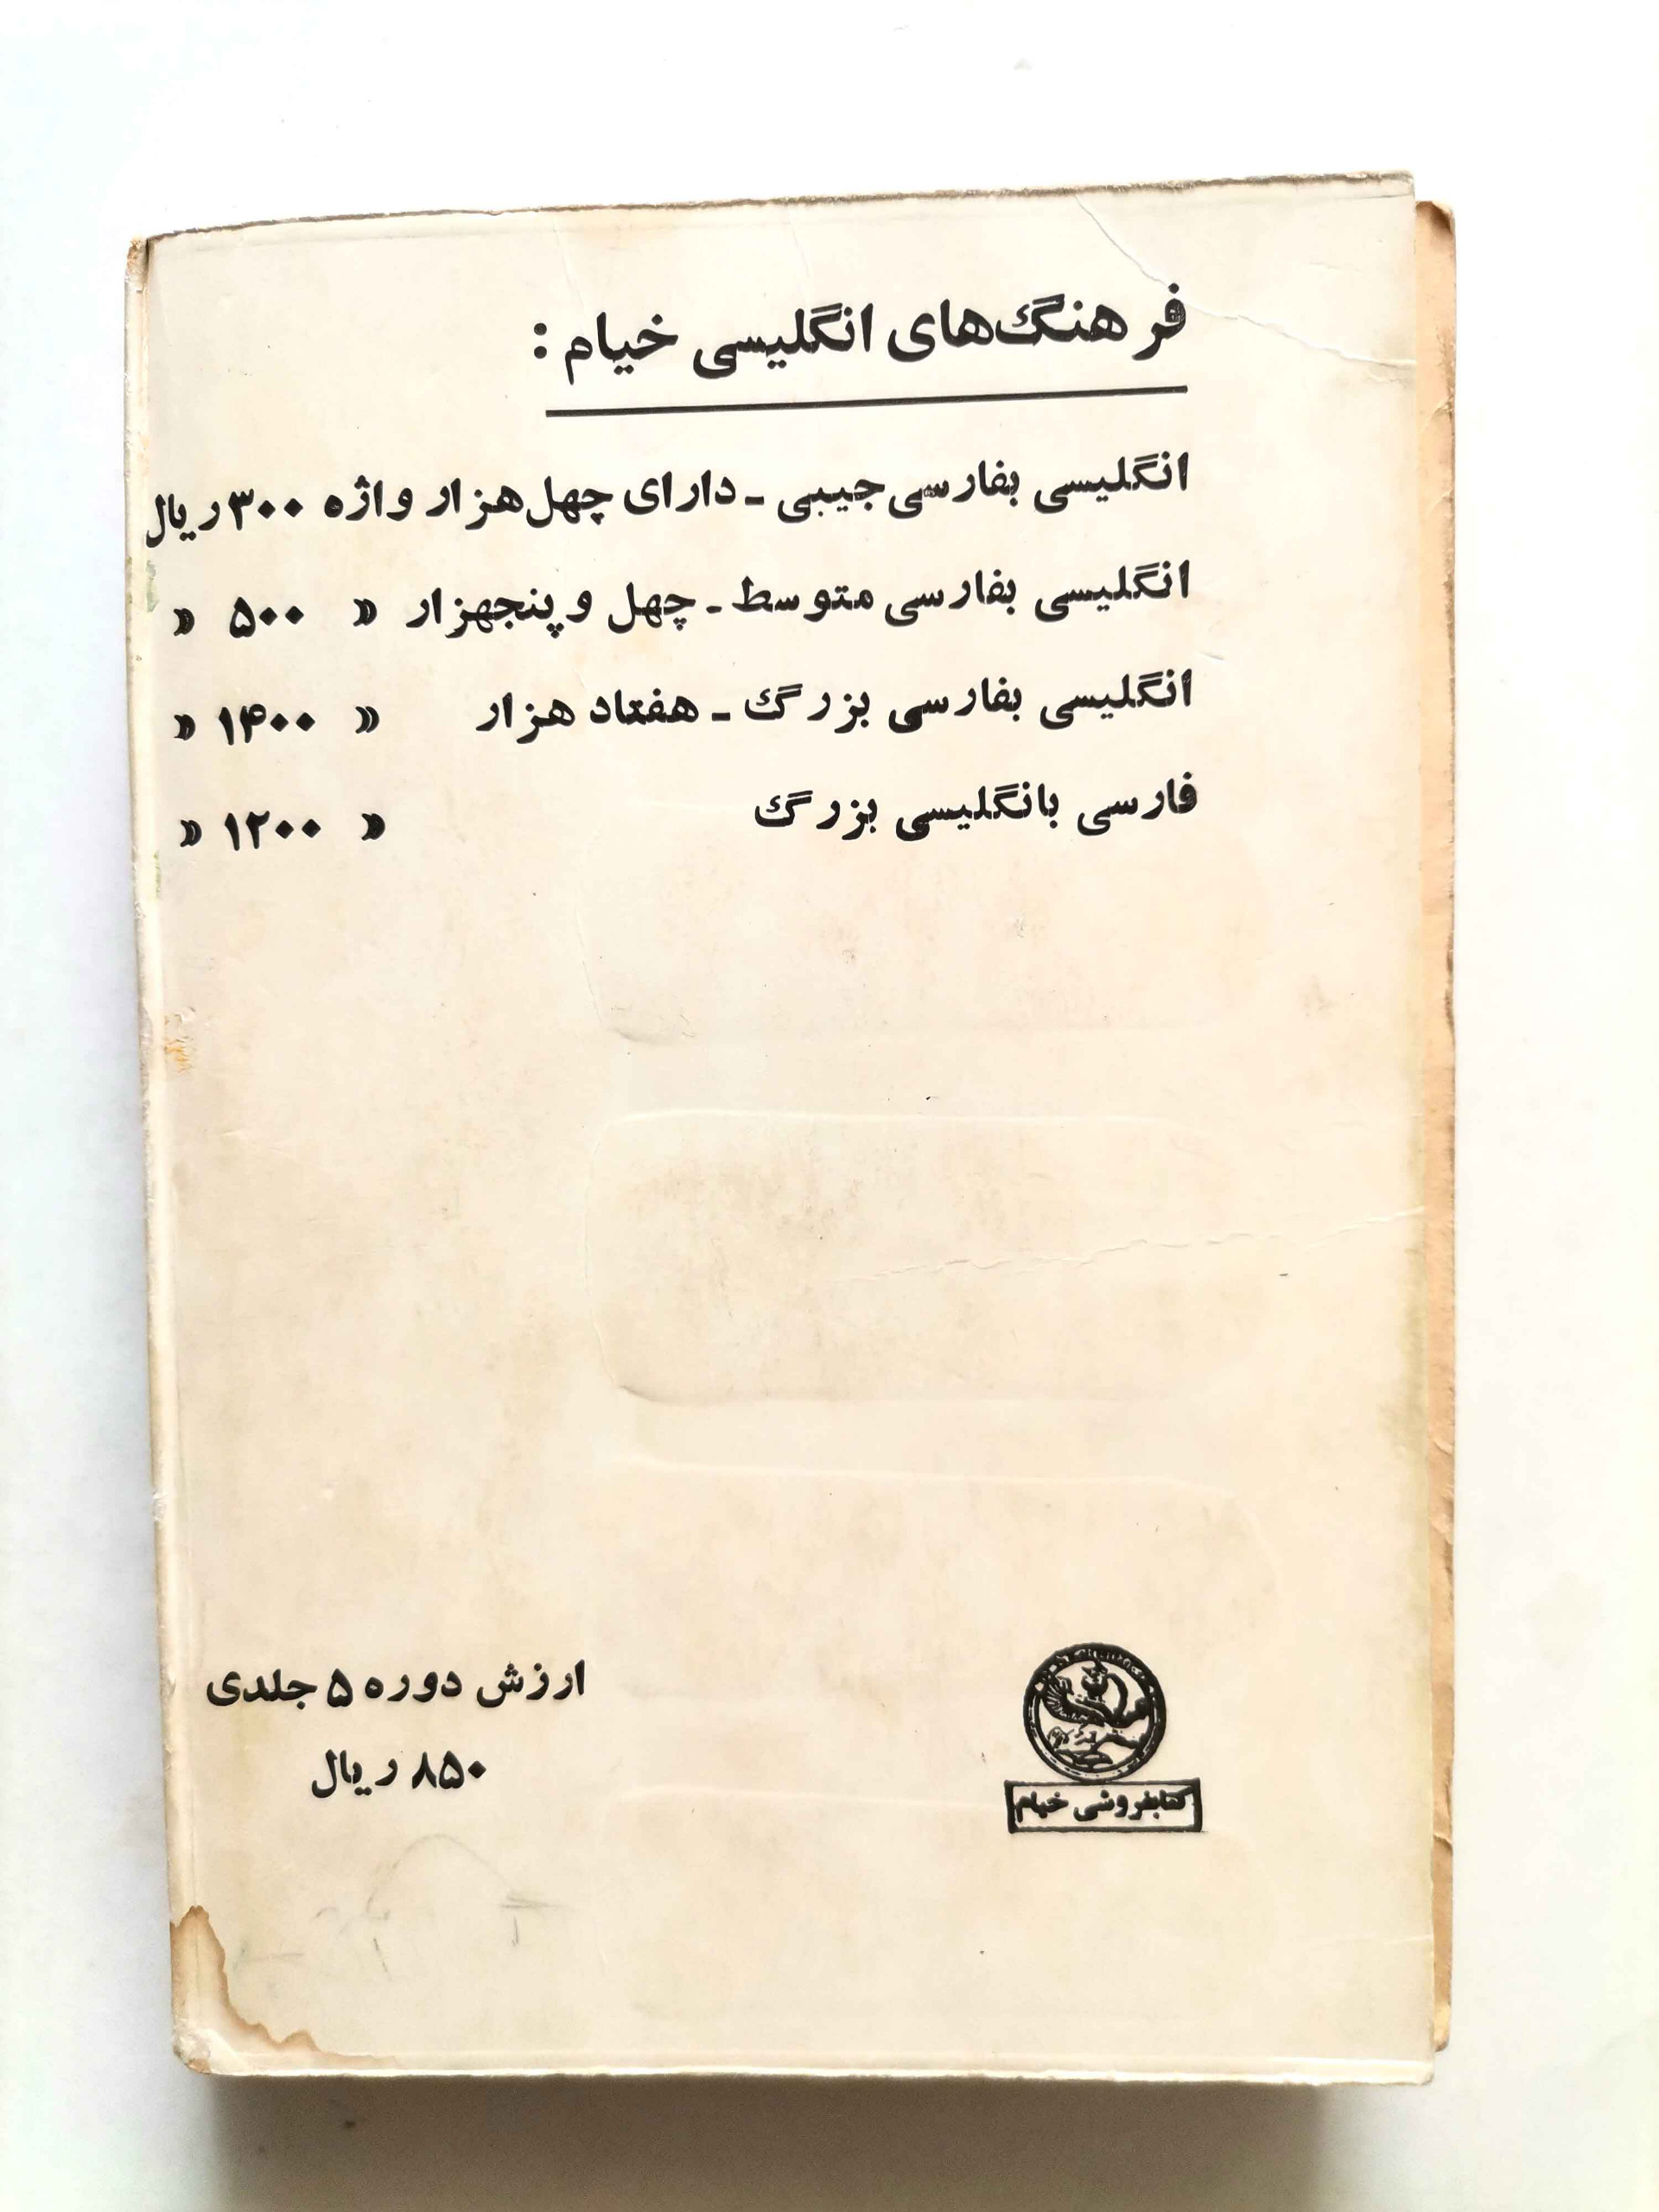 فرهنگ‌های انگلیسی خیام :
انگلیسی بفارسی جیبی - دارای چهل هزار واژه ۳۰۰ ریال
انگلیسی بفارسی متوسط - چهل و پنجهزار » ۵۰۰ »
انگلیسی بفارسی بزرگ - هفتاد هزار » ۱۴۰۰ »
فارسی بانگلیسی بزرگ » ۱۲۰۰ »
ارزش دوره ۵ جلدی
۸۵۰ ریال
کتابفروشی خیام